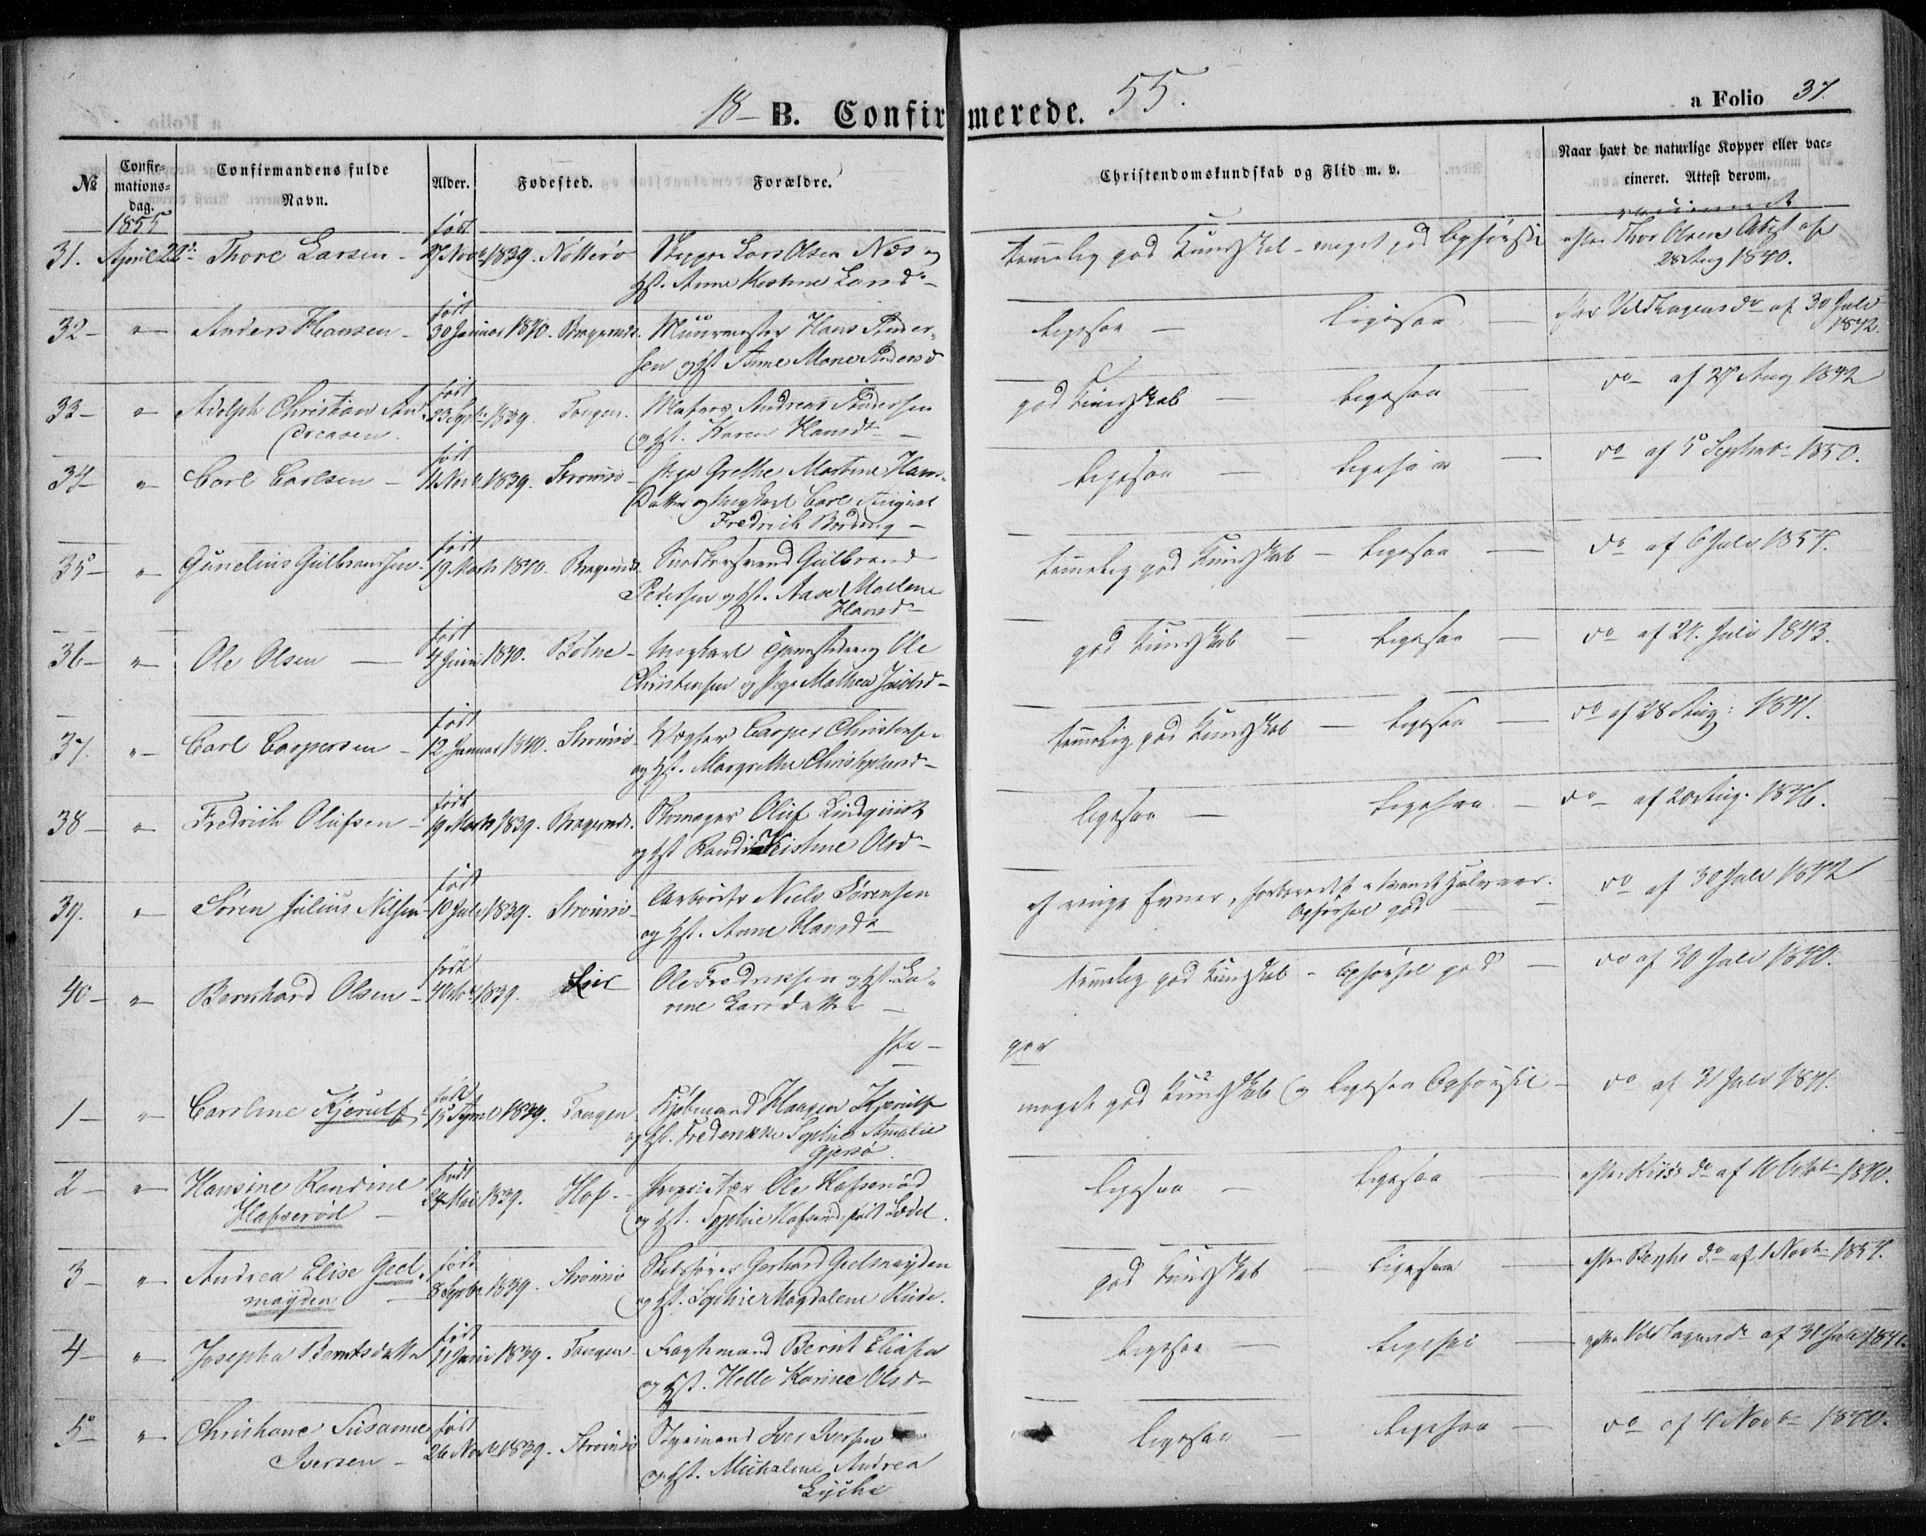 18- B. Confirmerede. 55.
a Folio 37.
№ Confirmationsdag. Confirmandens fulde Navn. Alder. Fødested. Forældre. Christendomskundskab og Flid m. v. Naar havt de naturlige Kopper eller vaccineret. Attest derom.
1855
født
31. April 22 Thore Larsen - 1839. Nøtterø Lars Olsen Næs og temmelig god Kundskab - meget god Opførsel efter Thor Olsens Attest af
Hst. Anne Kirstine Larsd - 28 Aug 1840.
født
32 - " - Anders Hansen - 30 Januar 1840. Bragernæs. Muurmester Hans Ander- ligesaa - ligesaa - efter Vildhagens do af 30 Juli
sen og Hst Anne Marie Andersd 1842.
født
33 - " Adolph Christian An- 1839. Tangen. Matros Andreas Andersen god Kundskab - ligesaa do - af 27 Aug 1842
dreasen. og Hst. Karen Hansdr -
født
34 - " Carl Carlsen - 11 Nov 1839. Strømsø - Pige Grethe Martine Hans- ligesaa - ligesaa - do af 5 Septbr 1850.
Datter og Ungkarl Carl August
Fredrik -
født
35 - " Gunelius Gulbrandsen - 19 Marts 1840. Bragernds. Snedkersvend Gulbrand temmelig god Kundskab - ligesaa - do af 6 Juli 1854.
Pedersen og Hst. Aase Mallene
Hansd -
født
36 - " Ole Olsen - 4 Juni 1840. Botne - Ungkarl Ole god Kundskab - ligesaa - do af 24. Juli 1843.
Christensen og Pige Mathea Jacobsd -
født
37. " - Carl Caspersen - 12 Januar 1840. Strømsø - Vægter Casper Christensen temmelig god Kundskab - ligesaa - do af 28 Aug: 1841.
og Hst. Margrethe Christophersd -
født
38 - " Fredrich Olufsen - 19 Marts 1839. Bragernds. Skomager Oluf Lindquist ligesaa - ligesaa - do - af 20 Aug. 1846.
og Hst Randi Kirstine Olsd -
født
39. " Søren Julius Nilsen - 10 Juli 1839. Strømsø - Arbeider Niels Sørensen af ringe Evner, forberedt et Halvaar. do af 30 Juli 1842
og Hst. Anne Hansdr Opførsel god -
født
40 - " Bernhard Olsen - 1839. Lier Ole Fredriksen og Hst. La- temmelig god Kundskab - Opførsel god - do af 30 Juli 1840.
rine Larsdatter -
Pi-
ger
født
1 - " Caroline Kjerulf - 15 April 1839. Tangen Kjøbmand Haagen Kjerulf meget god Kundskab og ligesaa Opførsel - do af 31 Juli 1841.
og Hst. Frederikke Sophie Amalie
Gjersø.
født
2 - " Hansine Randine 24 Mai 1839. Hof - Proprietær Ole Hafserød ligesaa - ligesaa - efter Riis's do af 16 Octbr 1840.
Hafserød - og Hst. Sophie Hafserød født Lødel.
født
3 - " Andrea Elise Geel- 8 Septbr 1839. Strømsø Skibsfører Gerhard Geelmuyden god Kundskab - ligesaa - efter do af 1 Novbr 1854.
mayden - og Hst. Sophie Magdalene Riide.
født
4 - " Josepha Berntsdatter 11 Juni 1839. Tangen - Fragtmand Bernt Eliasen ligesaa - ligesaa - efter Vildhagens do af 31 Juli 1841.
og Hst. Helle Karine Olsd -
født
5 - " Christiane Susanne 26 Nov 1839. Strømsø Styrmand Iver Iversen ligesaa - ligesaa - do af 4 Novbr 1840.
Iversen - og Hst. Michaline Andrea
Lyche